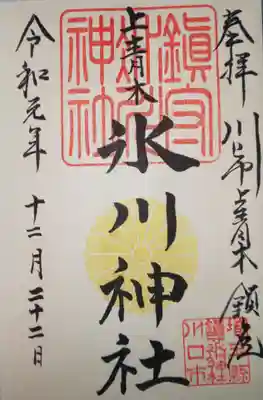 奉拝 川口市上青木 鎮座
上青木
氷川神社
令和元年 十二月二十二日
鎮守
氷川
神社
埼玉県
川口市